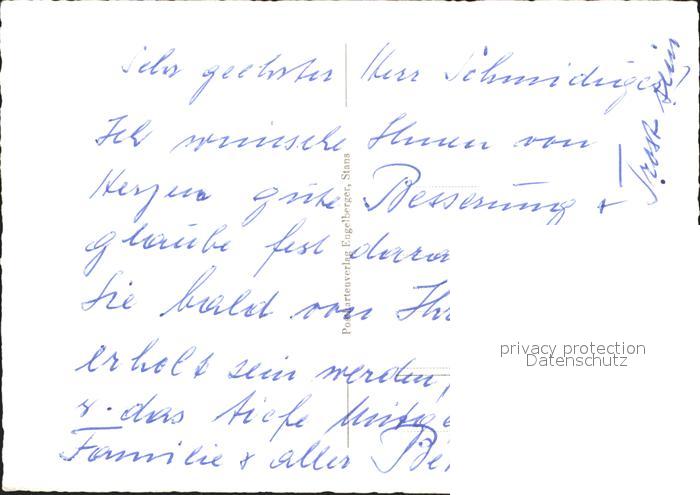 Sehr geehrter Herr Schmidiger,
Ich wünsche Ihnen von
Herzen gute Besserung +
glaube fest dara
Sie bald von Ihr
erholt sein werden,
u. das tiefe Mitge
Familie & aller Be
Trost sein
Postkartenverlag Engelberger, Stans
privacy protection
Datenschutz